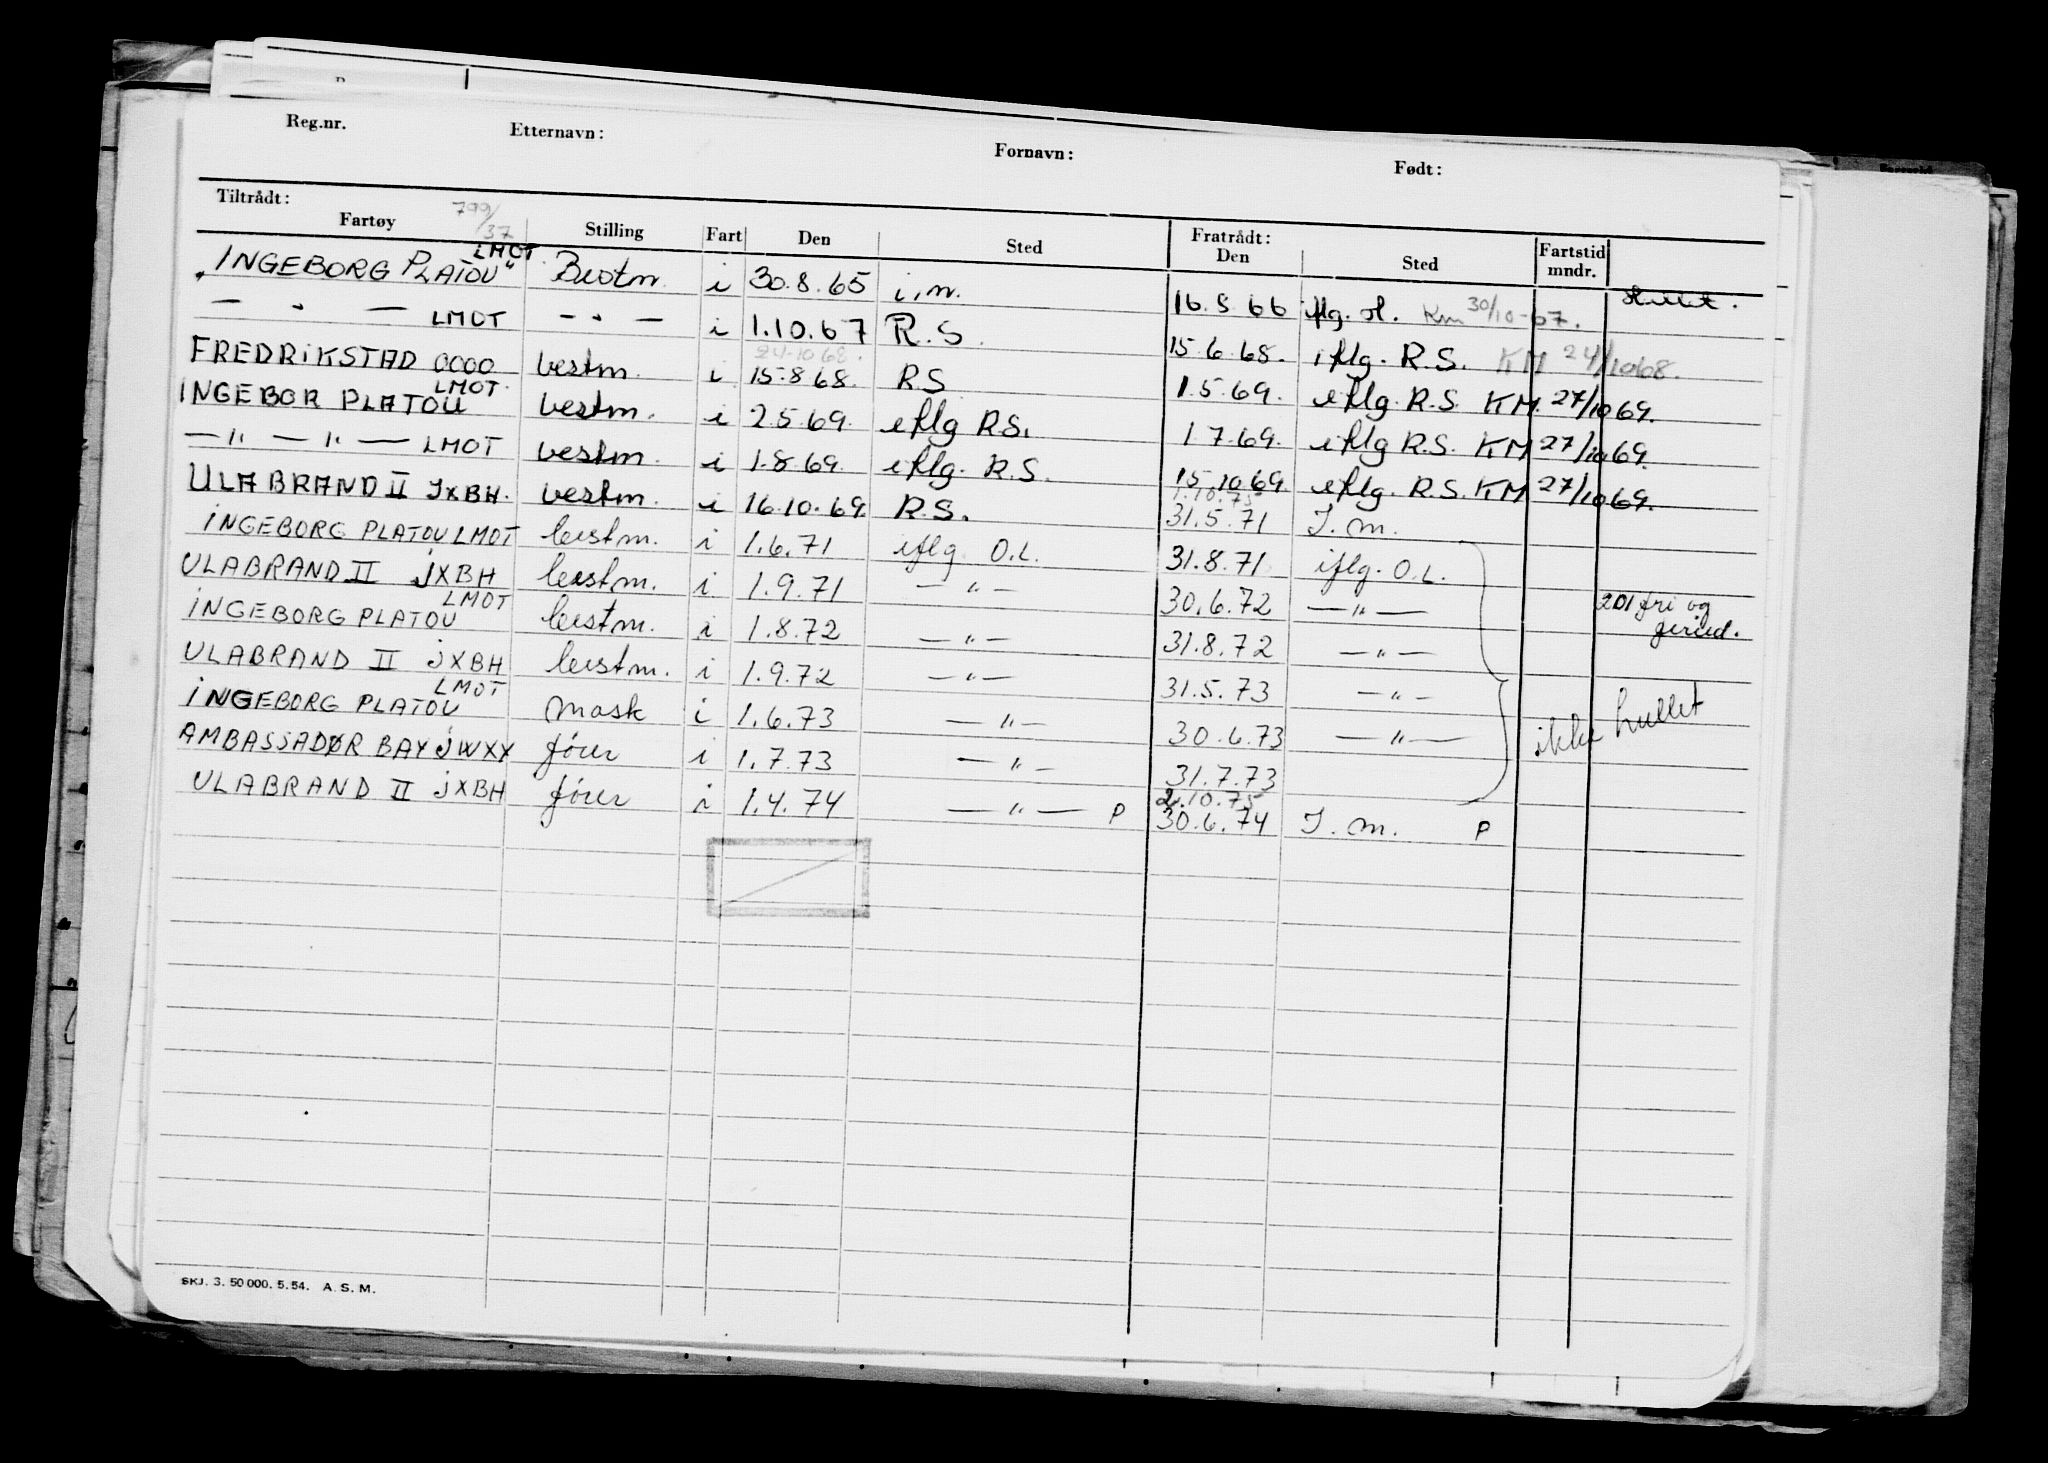 Reg.nr. Etternavn: Fornavn: Født:
Tiltrådt: Fratrådt:
Fartøy 799/37 Stilling Fart Den Sted Den Sted Fartstid mndr.
"INGEBORG PLATOU" LMOT Bestm. i 30.8.65 i.m. 16.8.66 iflg. Km 30/10-67.
— " — LMOT — " — i 1.10.67 R.S. 15.6.68. iflg. R.S. KM 24/1068.
24.10.68.
FREDRIKSTAD OOOO bestm. i 15.8.68. RS 1.5.69. iflg. R.S. KM. 27/10 69.
INGEBOR PLATOU LMOT. bestm. i 2.5.69. iflg R.S. 1.7.69. iflg R.S. KM 27/10 69.
— " — " — LMOT bestm. i 1.8.69. iflg. R.S. 15.10.69. iflg. R.S. KM 27/10 69.
1.10.75
ULABRAND II JXBH. bestm. i 16.10.69. R.S. 31.5.71 I.m.
INGEBORG PLATOU LMOT bestm. i 1.6.71 iflg. O.L. 31.8.71 iflg. O.L.
ULABRAND II JXBH bestm. i 1.9.71 — " — 30.6.72 — " — 201 fri og
INGEBORG PLATOU LMOT bestm. i 1.8.72 — " — 31.8.72 — " —
ULABRAND II JXBH bestm. i 1.9.72 — " — 31.5.73 — " —
INGEBORG PLATOU LMOT mask i 1.6.73 — " — 30.6.73 — " — ikke hullet
AMBASSADØR BAY JWXY fører i 1.7.73 — " — 31.7.73
2.10.75
ULABRAND II JXBH fører i 1.4.74 — " — P 30.6.74 I.m. P
SKJ. 3. 50 000. 5. 54. A. S. M.